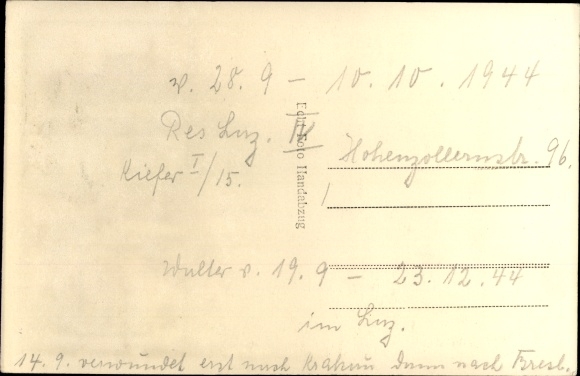 v. 28. 9 – 10. 10. 1944
Res Laz. II Hohenzollernstr. 96.
Kiefer I/15.
Echt Foto Handabzug
Walter v. 19. 9 – 23. 12. 44
im Laz.
14. 9. verwundet erst nach Krakau dann nach Bresl.